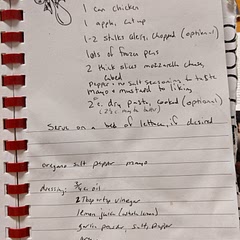 1 can chicken
1 apple, cut up
1-2 stalks celery, chopped (optional)
lots of frozen peas
2 thick slices mozzarella cheese,
cubed
Pepper + no salt seasoning to taste
Mayo + mustard to liking
2 c. dry pasta, cooked (optional)
Serve on a bed of lettuce, if desired
oregano salt pepper mayo
dressing: 3/4 c oil
2 Tbsp vinegar
lemon juice (whole lemon)
garlic powder, salt, pepper